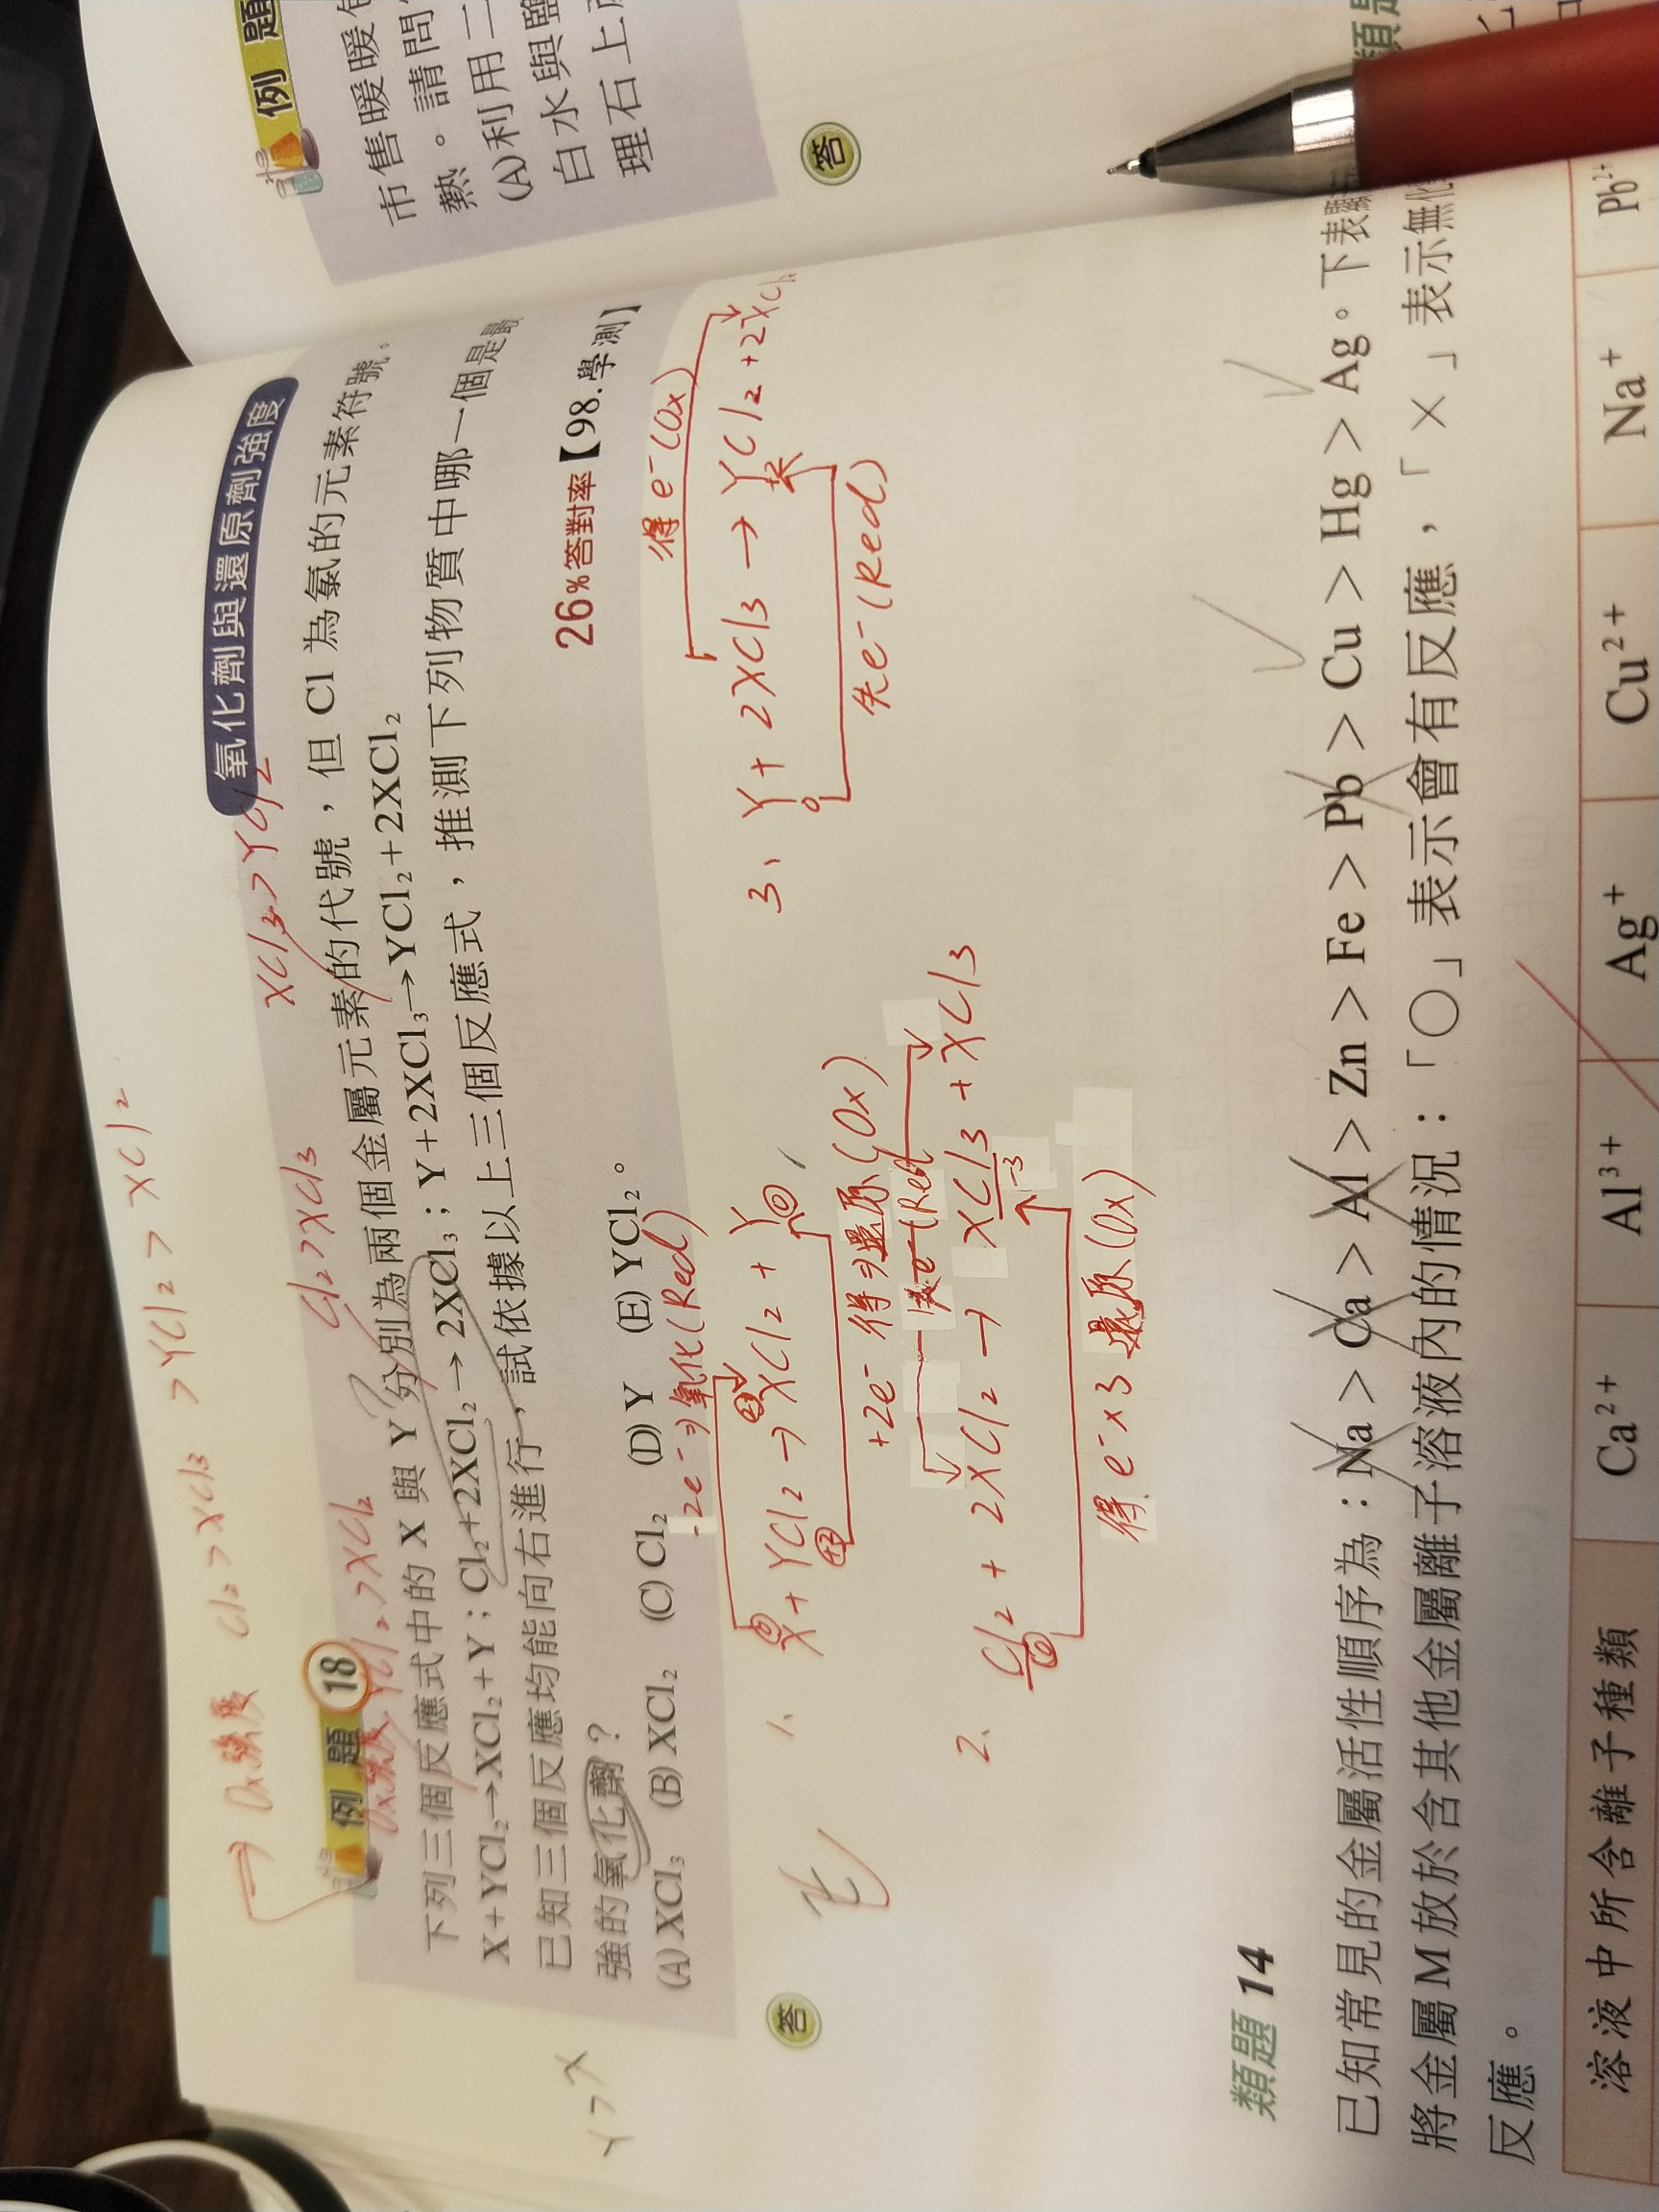 ⇒ Ox強度 Cl₂ > XCl₃ > YCl₂ > XCl₂
氧化劑與還原劑強度
例題 18
YCl₂ > XCl₂ Cl₂ > XCl₃ XCl₃ > YCl₂
下列三個反應式中的 X 與 Y 分別為兩個金屬元素的代號，但 Cl 為氯的元素符號。
X+YCl₂→XCl₂+Y；Cl₂+2XCl₂→2XCl₃；Y+2XCl₃→YCl₂+2XCl₂
已知三個反應均能向右進行，試依據以上三個反應式，推測下列物質中哪一個是最
強的氧化劑？
(A) XCl₃ (B) XCl₂ (C) Cl₂ (D) Y (E) YCl₂。
26%答對率【98.學測】
Y > X
答
-2e⁻ ⇒ 氧化(Red)
1、 X + YCl₂ → XCl₂ + Y
0 +2 +2 0
+2e⁻ 得 ⇒ 還原(Ox)
2、 Cl₂ + 2XCl₂ → XCl₃ + XCl₃
0 -3
得 e⁻×3 還原(Ox)
得 e⁻(Ox)
3、 Y + 2XCl₃ → YCl₂ + 2XCl₂
0
失e⁻(Red)
類題 14
已知常見的金屬活性順序為：Na > Ca > Al > Zn > Fe > Pb > Cu > Hg > Ag。下表顯示
將金屬 M 放於含其他金屬離子溶液內的情況：「○」表示會有反應，「×」表示無化
反應。
溶液中所含離子種類 Ca²⁺ Al³⁺ Ag⁺ Cu²⁺ Na⁺ Pb²⁺
例題
市售暖暖包
熱。請問
(A)利用二
白水與鹽
理石上
答
類題